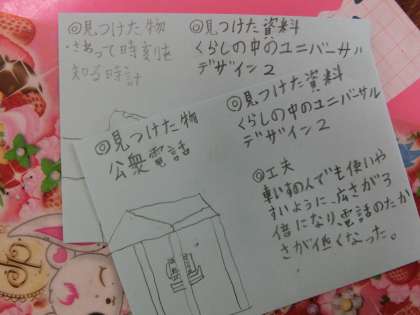 ◎見つけた物
・さわって時刻を
知る時計
◎見つけた資料
くらしの中のユニバーサル
デザイン2
◎見つけた物
公衆電話
◎見つけた資料
くらしの中のユニバーサル
デザイン2
◎工夫
車いすの人でも使いや
すいように、広さが3
倍になり、電話のたか
さが低くなった。